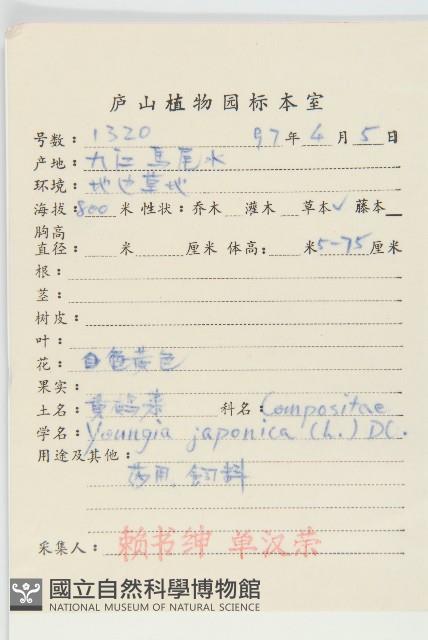 庐山植物园标本室
号数：1320 97年4月5日
产地：九江马尾水
环境：地边草地
海拔：800米 性状：乔木 灌木 草本✓ 藤本
胸高
直径： 米 厘米 体高： 米5-75厘米
根：
茎：
树皮：
叶：
花： 黄色
果实：
土名：黄鹌菜 科名：Compositae
学名：Youngia japonica (L.) DC.
用途及其他：
药用，饲料
采集人：赖书绅 单汉荣
國立自然科學博物館
NATIONAL MUSEUM OF NATURAL SCIENCE